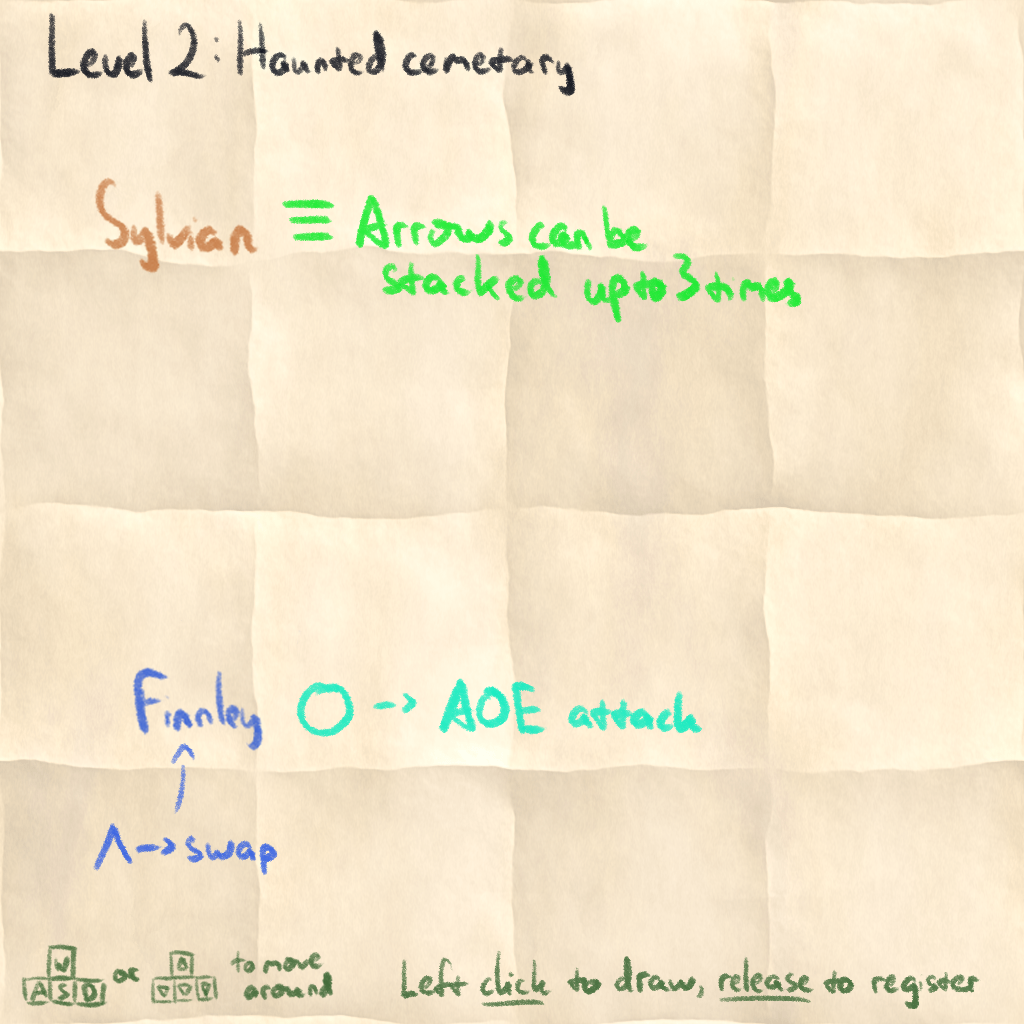 Level 2: Haunted cemetary
Sylvian ≡ Arrows can be
stacked up to 3 times
Finnley O -> AOE attack
Λ -> swap
W
A S D or to move
around
Left click to draw, release to register